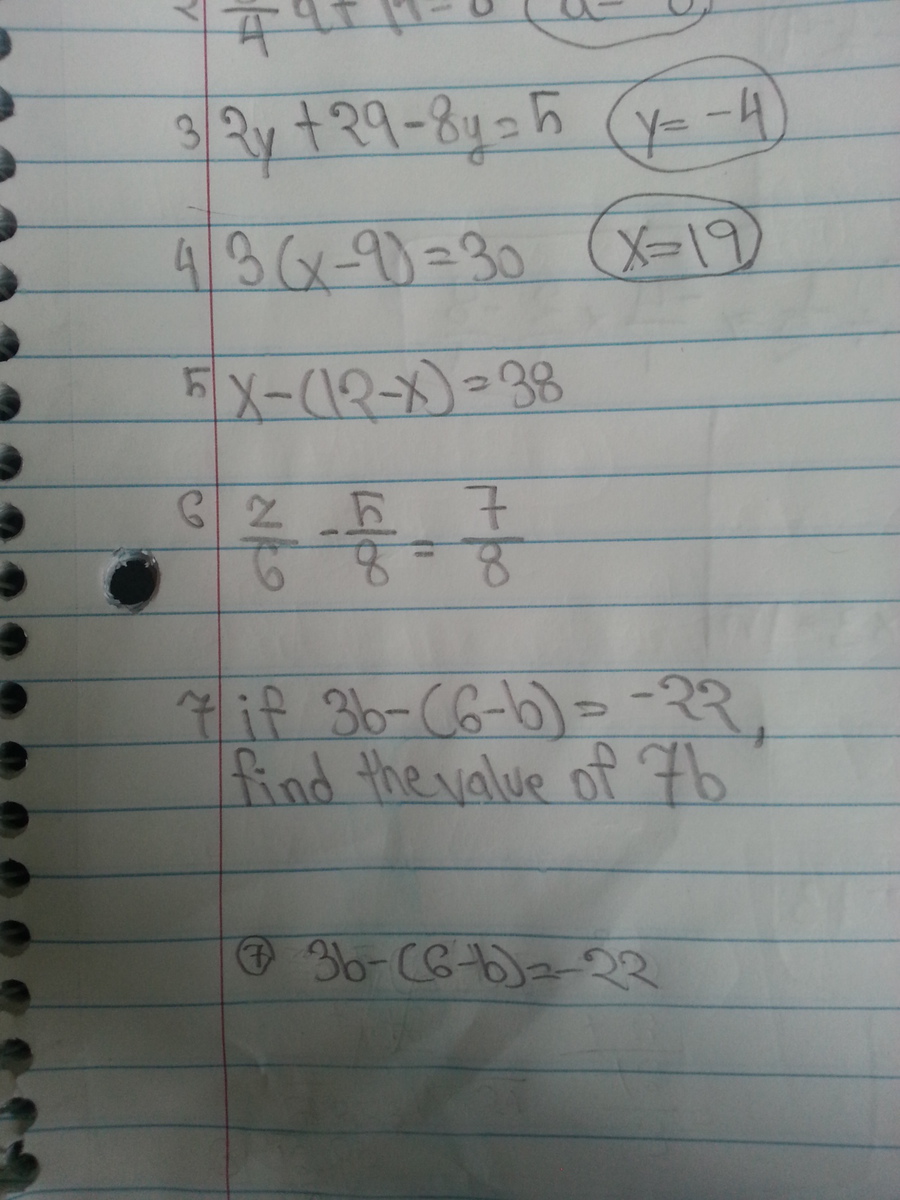 3 2y+29-8y=5 y=-4
4 3(x-9)=30 x=19
5 x-(12-x)=38
6 z/6 - 5/8 = 7/8
7 if 3b-(6-b)=-22,
find the value of 7b
7 3b-(6-b)=-22